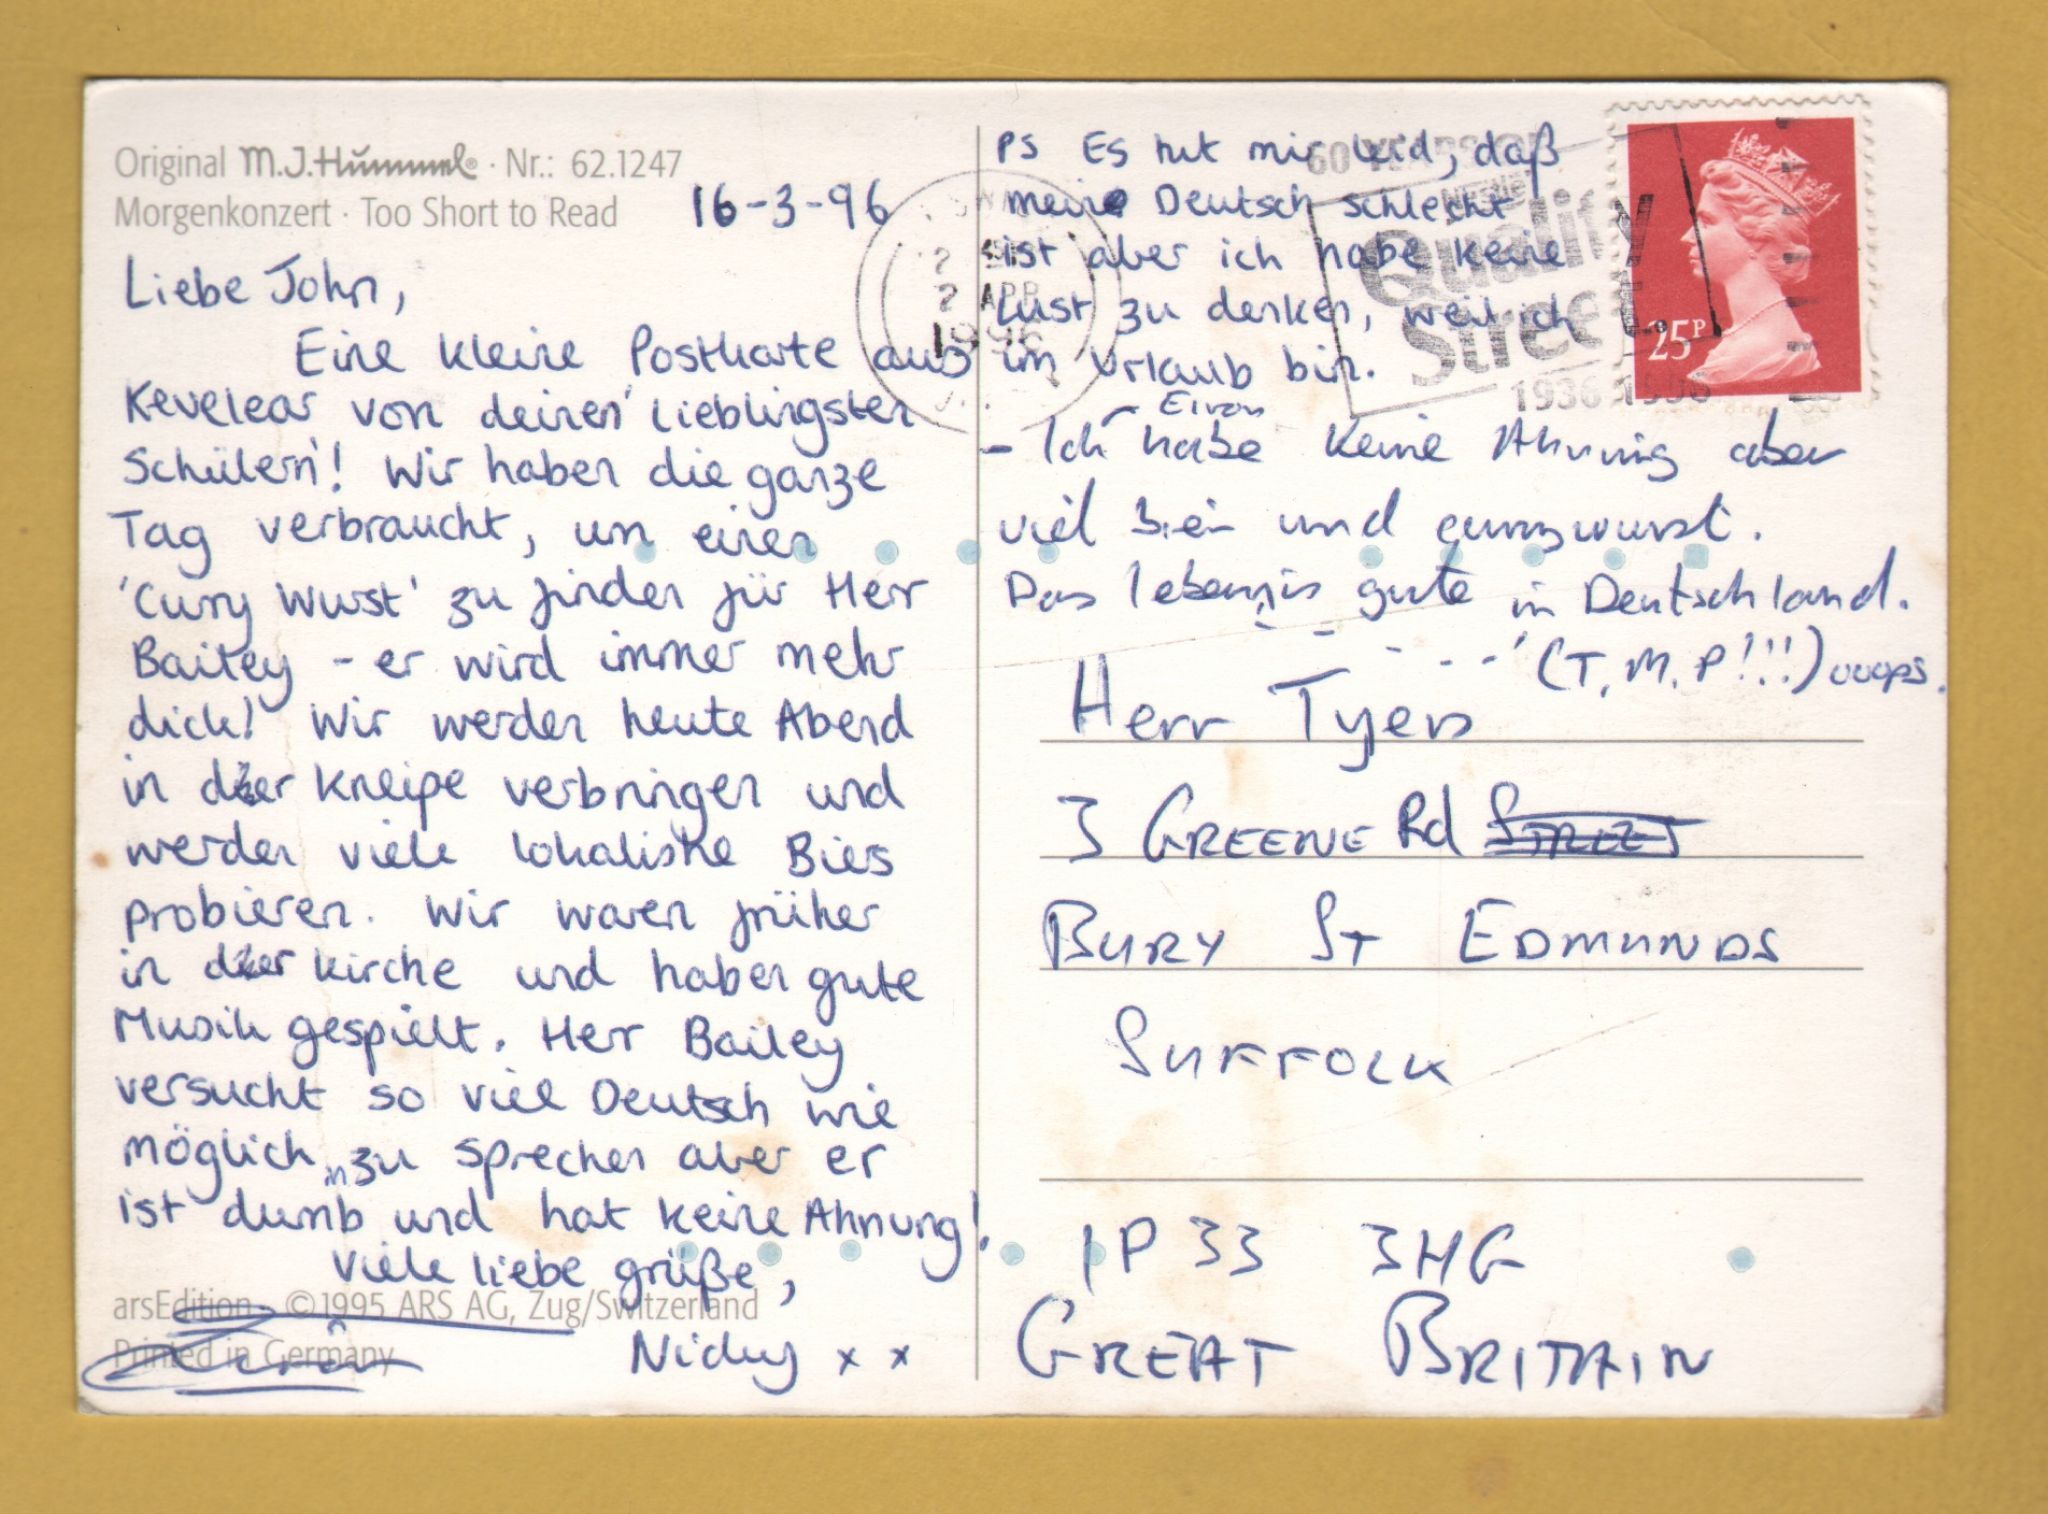 Original M.J.Hummel® · Nr.: 62.1247
Morgenkonzert · Too Short to Read
16-3-96
Liebe John,
Eine kleine Postkarte aus
Kevelear von deinen 'Lieblingsten
Schülern'! Wir haben die ganze
Tag verbraucht, um einen
'Curry Wurst' zu finden für Herr
Bailey - er wird immer mehr
dick! Wir werden heute Abend
in der Kneipe verbringen und
werden viele lokalishe Biers
probieren. Wir waren früher
in der Kirche und haben gute
Musik gespielt. Herr Bailey
versucht so viel Deutsch wie
möglich zu sprechen aber er
ist dumb und hat keine Ahnung!
Viele liebe grüße,
Nicky x x
arsEdition · ©1995 ARS AG, Zug/Switzerland
Printed in Germany
PS Es tut mir leid, daß
meine Deutsch schlecht
ist aber ich habe keine
Lust zu denken, weil ich
im Urlaub bin.
- Ich habe keine Ahnung aber
viel Bier und
Das leben is gute in Deutschland.
(T.M.P!!!) ooops.
60 YEARS OF
Nestlé
Quality
Street
1936 1996
2 APR
1996
25P
Herr Tyers
3 GREENE Rd STREET
BURY ST EDMUNDS
SUFFOLK
IP33 3HG
GREAT BRITAIN